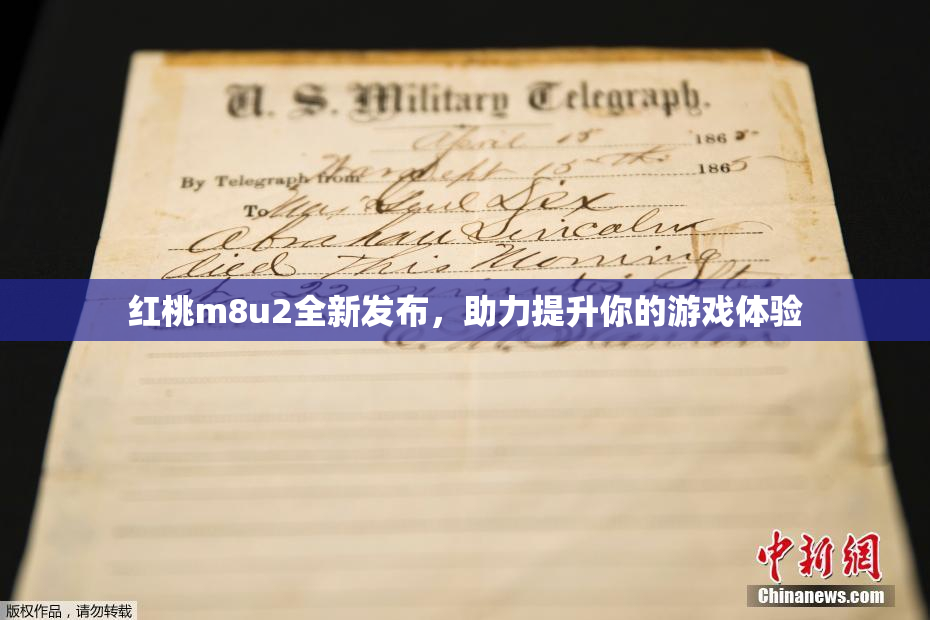 U. S. Military Telegraph.
April 15 1865
By Telegraph from War Dept 15th 1865
To Maj Genl Dix
Abraham Lincoln
died This Morning
at 22 minutes after
红桃m8u2全新发布，助力提升你的游戏体验
E. M. Stanton
中新網
Chinanews.com
版权作品，请勿转载